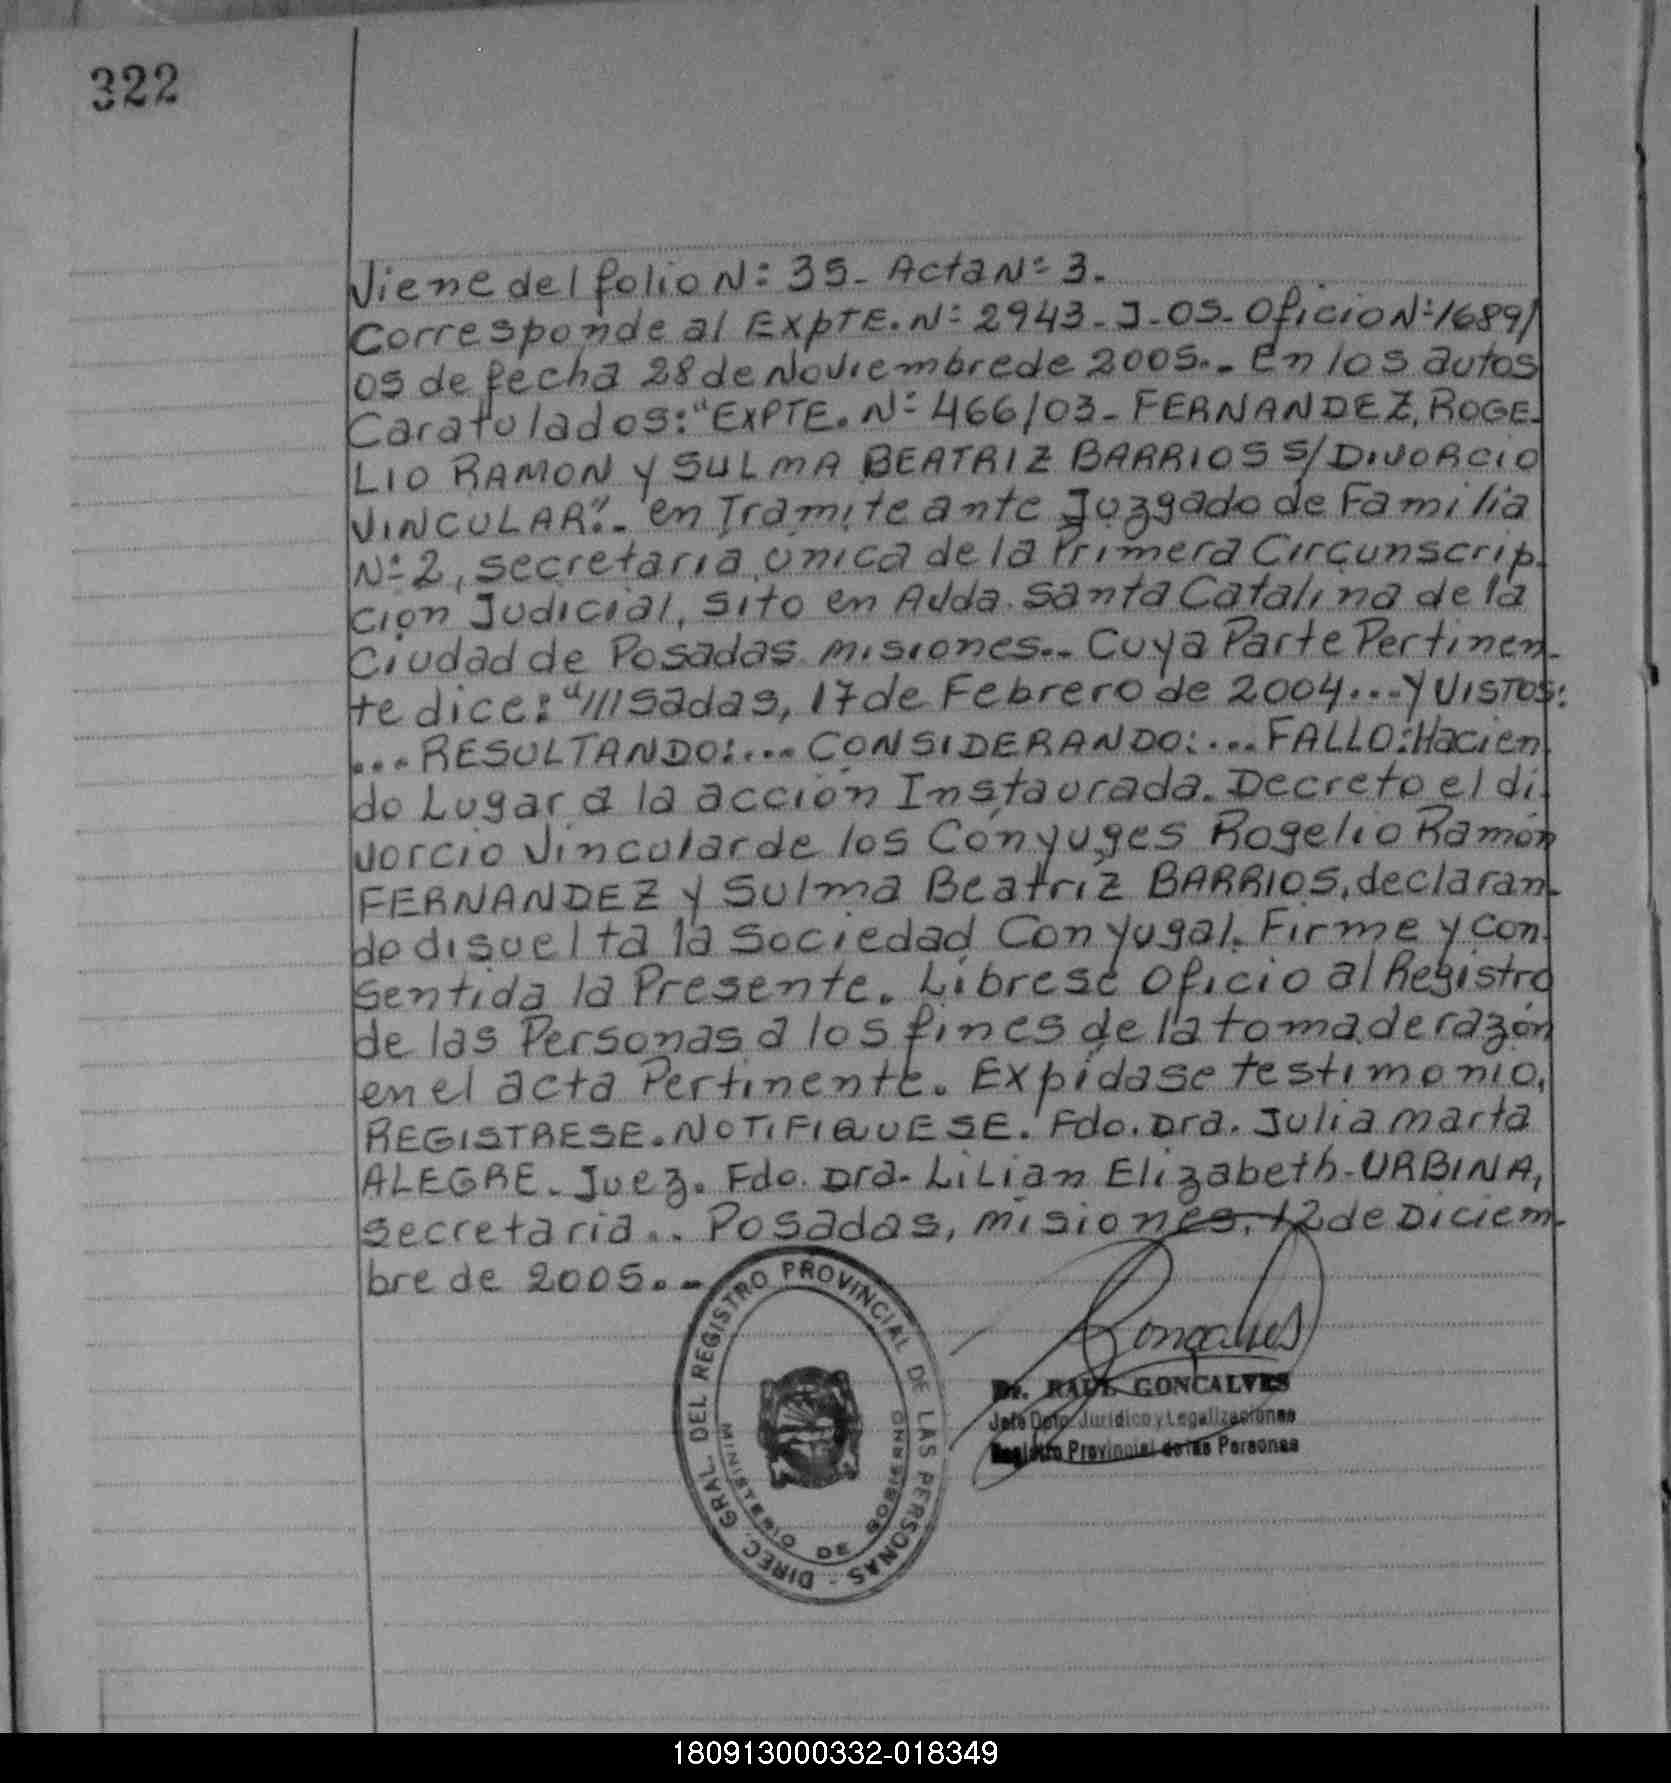 322
Viene del folio N: 35_ Acta N: 3.
Corresponde al EXPTE. N: 2943_J_05_ Oficio N: 1689/
05 de fecha 28 de Noviembre de 2005.._ En los autos
Caratulados: "EXPTE. N: 466/03_ FERNANDEZ, ROGE_
LIO RAMON y SULMA BEATRIZ BARRIOS S/DIVORCIO
VINCULAR"._ en Tramite ante Juzgado de Familia
N: 2, secretaria única de la Primera Circunscrip_
ción Judicial, sito en Avda. Santa Catalina de la
Ciudad de Posadas misiones.._ Cuya Parte Pertinen_
te dice: "///sadas, 17 de Febrero de 2004...Y VISTOS:
...RESULTANDO:...CONSIDERANDO:...FALLO: Hacien_
do Lugar a la acción Instaurada. Decreto el di_
vorcio Vincular de los Cónyuges Rogelio Ramón
FERNANDEZ y Sulma Beatriz BARRIOS, declaran_
do disuelta la Sociedad Conyugal. Firme y con_
sentida la Presente. Líbrese Oficio al Registro
de las Personas a los fines de la toma de razón
en el acta Pertinente. Expídase testimonio,
REGISTRESE. NOTIFIQUESE. Fdo. Dra. Julia marta
ALEGRE_ Juez. Fdo. Dra. LiLian Elizabeth_URBINA,
secretaria.. Posadas, misiones, 12 de Diciem_
bre de 2005._
DIREC. GRAL. DEL REGISTRO PROVINCIAL DE LAS PERSONAS -
MINISTERIO DE GOBIERNO
Goncalves
Dr. RAUL GONCALVES
Jefe Dpto. Jurídico y Legalizaciones
Registro Provincial de las Personas
180913000332-018349